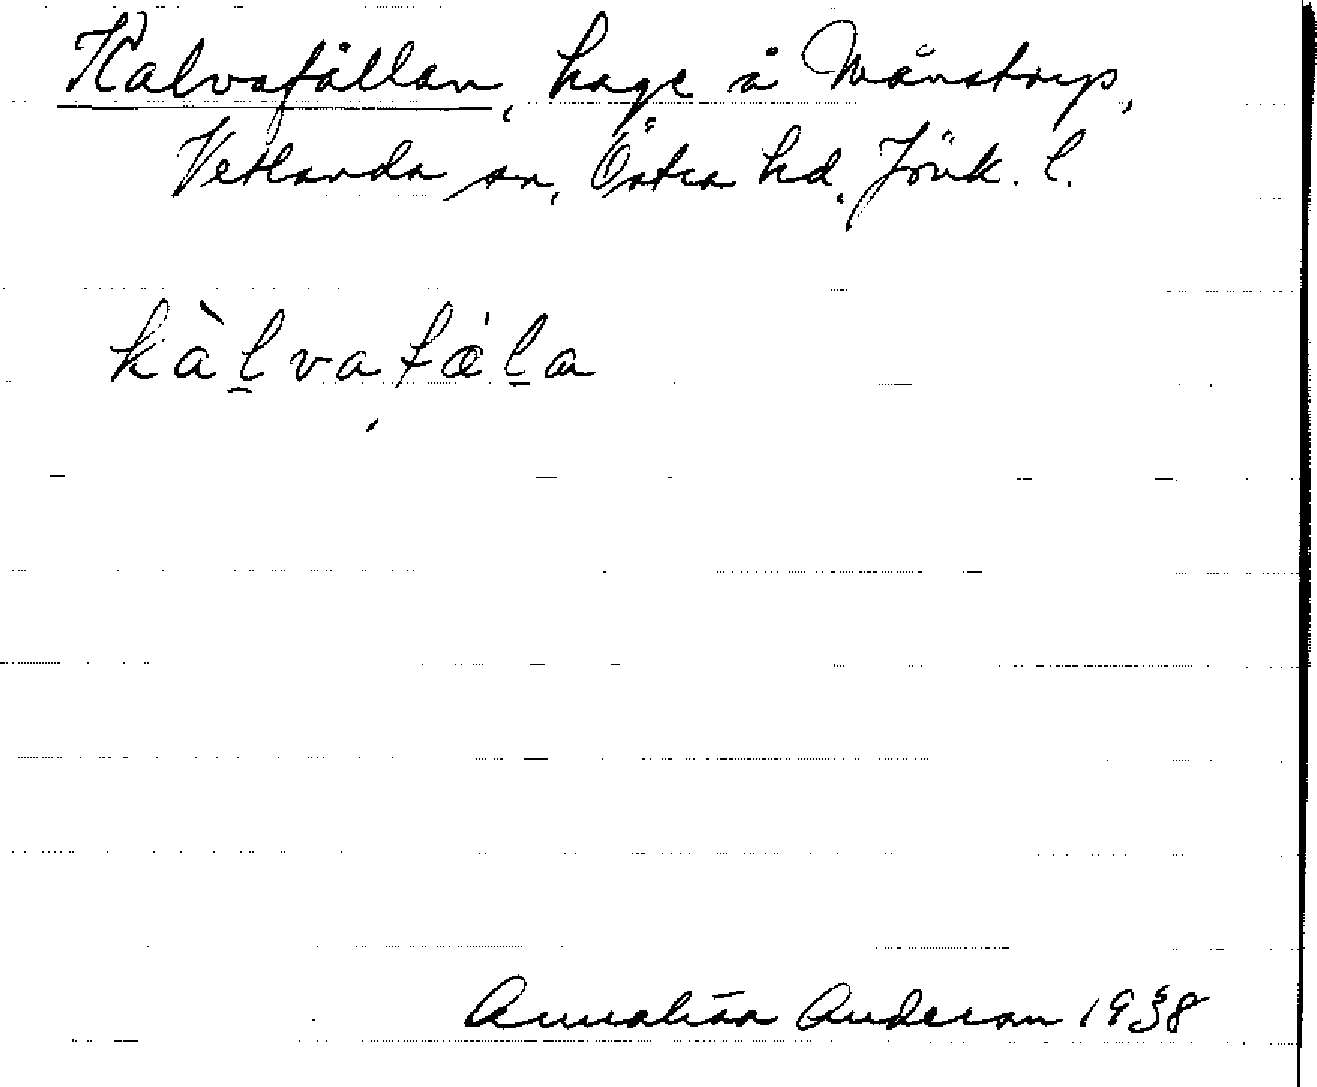 Kalvafållan, hage å Månstorp,
Vetlanda sn, Östra hd, Jönk. l.
kàl̠vafål̠a
Annalisa Anderson 1938